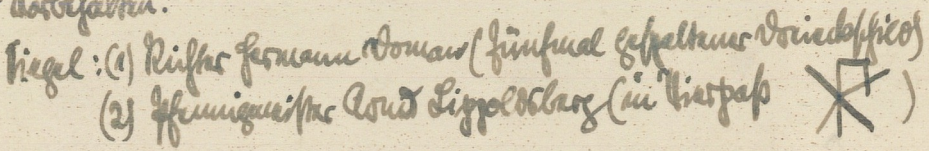 vorbehalten.
Siegel: (1) Richter Hermann Doman (fünfmal gespaltener Dreieckschild)
(2) Pfennigmeister Arnd Lippoldsberg (in Vierpaß )